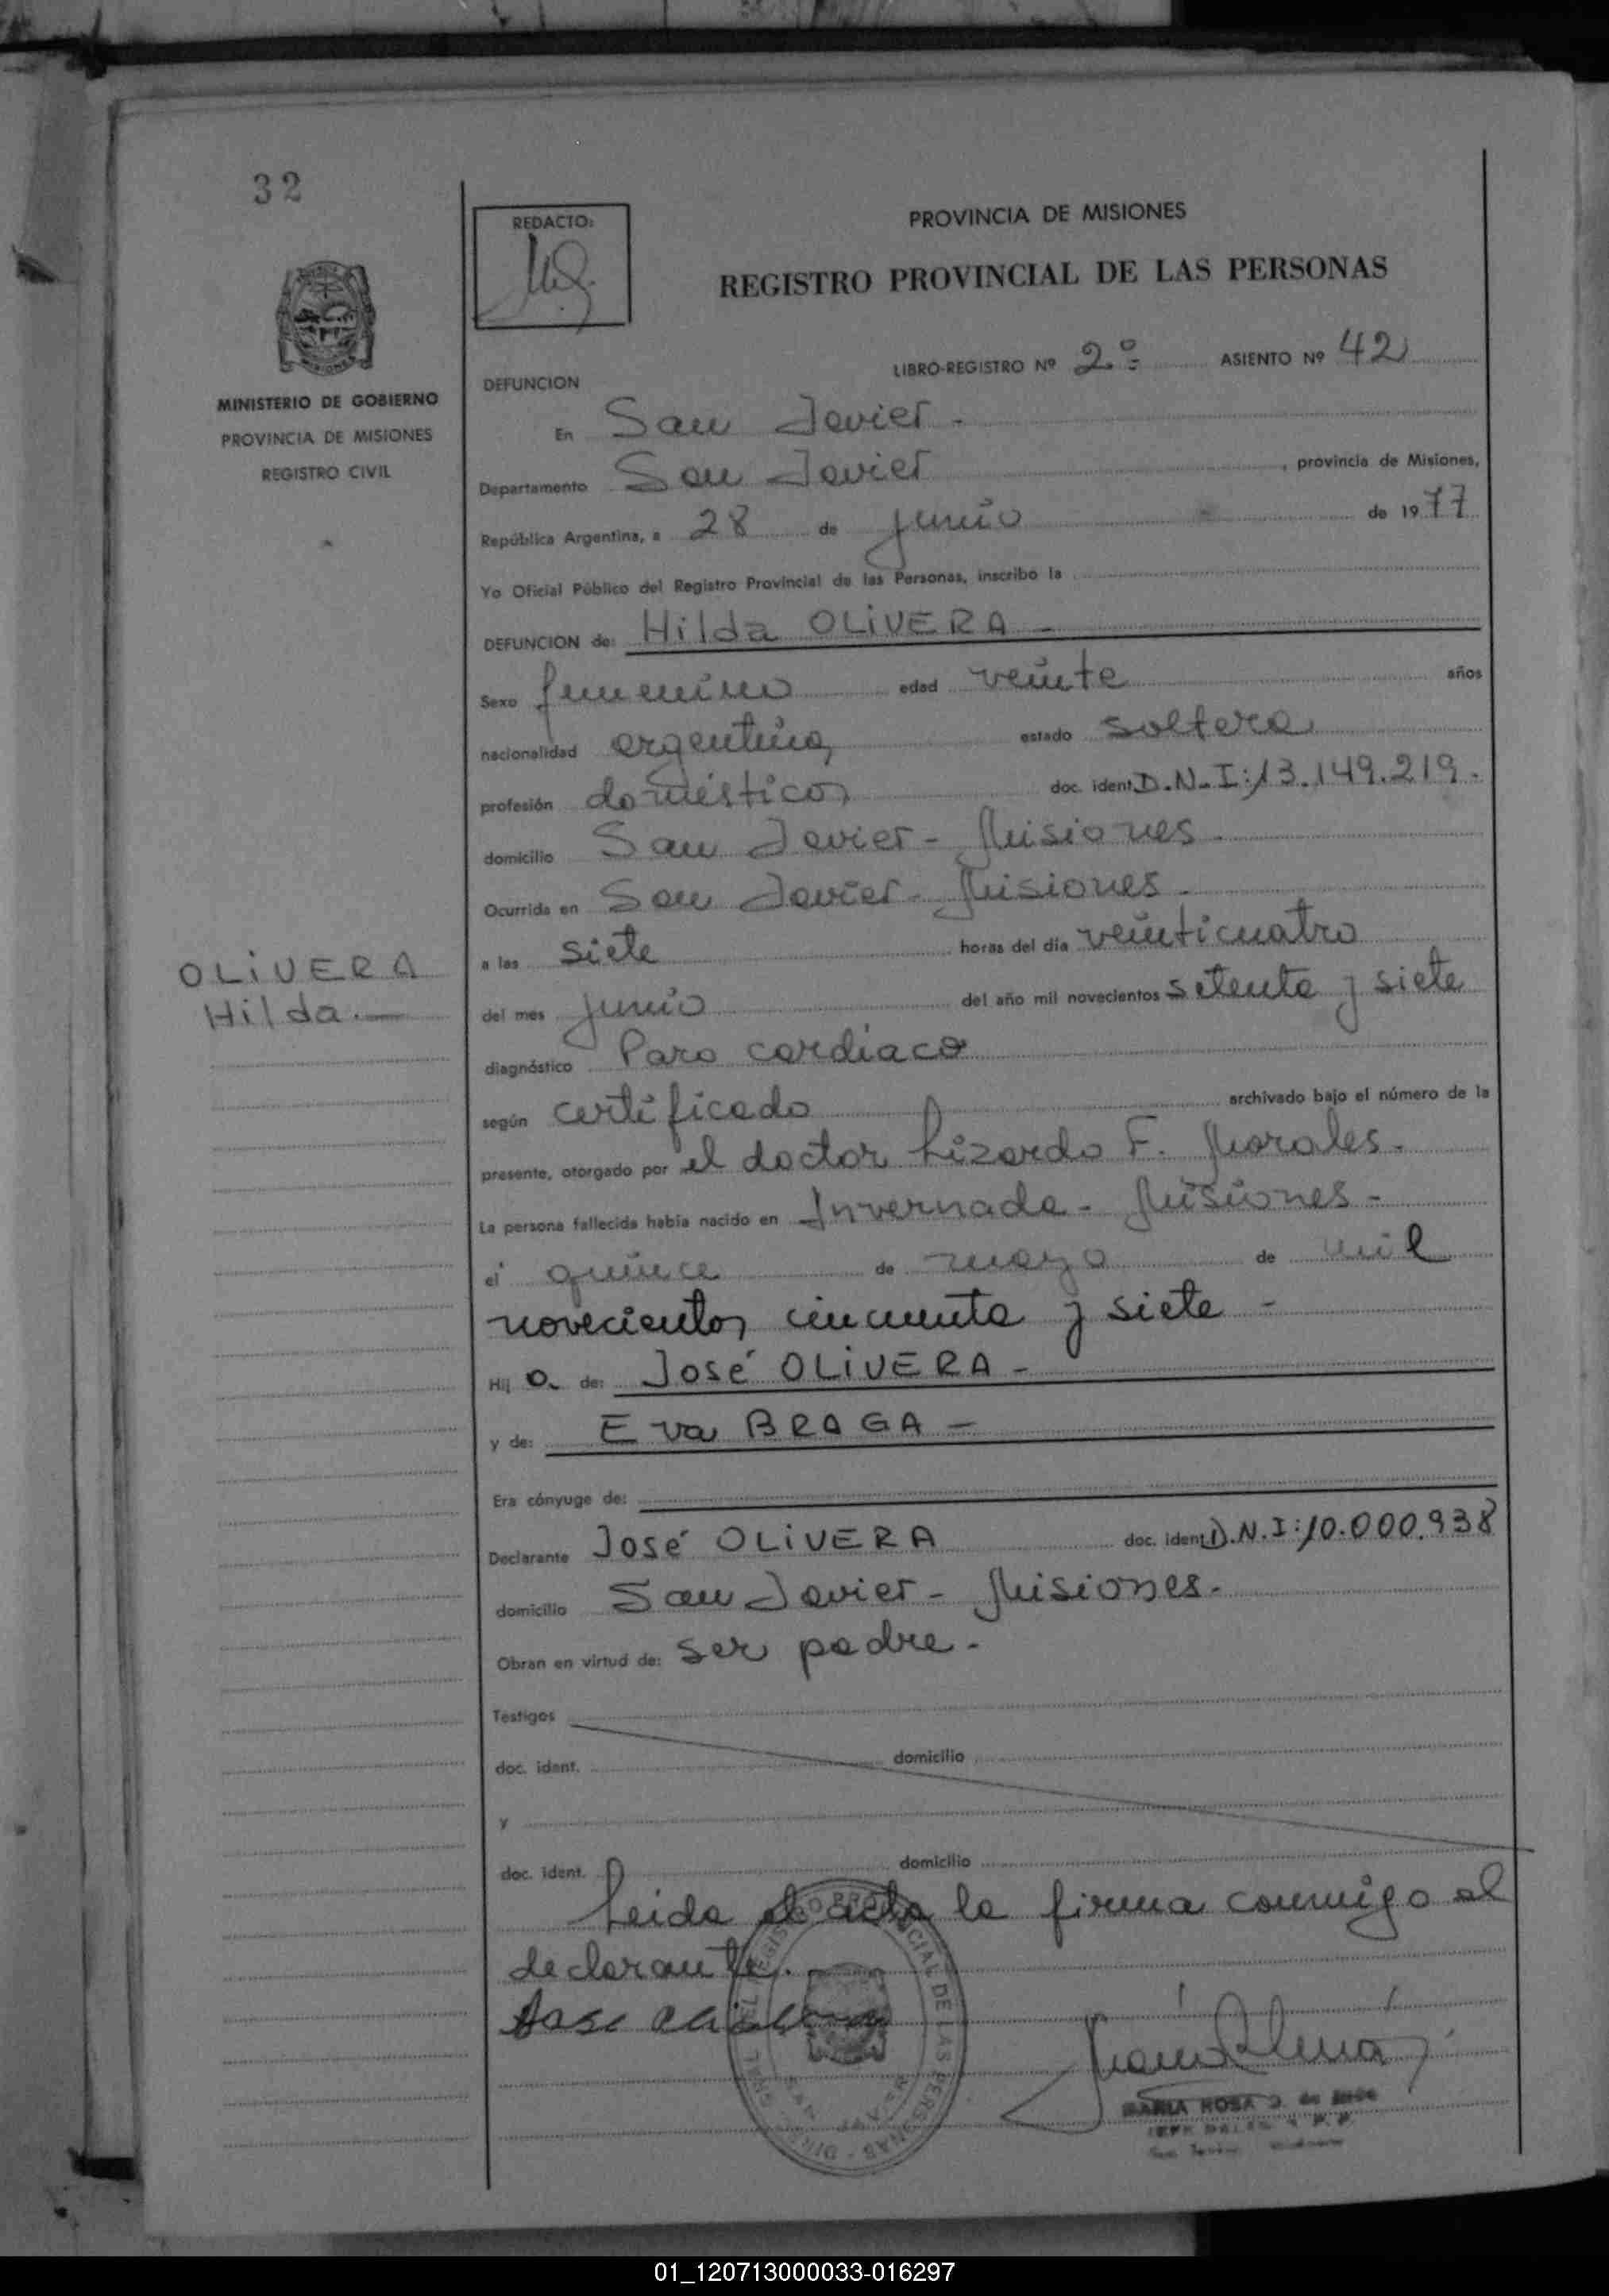 32
REDACTO:
PROVINCIA DE MISIONES
REGISTRO PROVINCIAL DE LAS PERSONAS
MINISTERIO DE GOBIERNO
PROVINCIA DE MISIONES
REGISTRO CIVIL
LIBRO-REGISTRO Nº 2º ASIENTO Nº 42
DEFUNCION
En San Javier.
Departamento San Javier, provincia de Misiones,
República Argentina, a 28 de junio de 1977
Yo Oficial Público del Registro Provincial de las Personas, inscribo la
DEFUNCION de: Hilda OLIVERA -
Sexo femenino edad veinte años
nacionalidad argentina, estado soltera
profesión domésticos doc. ident. D.N.I: 13.149.219.
domicilio San Javier - Misiones.
Ocurrida en San Javier - Misiones.
a las siete horas del día veinticuatro
OLIVERA
Hilda.
del mes junio del año mil novecientos setenta y siete
diagnóstico Paro cardiaco
según certificado archivado bajo el número de la
presente, otorgado por el doctor Lizardo F. Morales.
La persona fallecida había nacido en Invernada - Misiones -
el quince de mayo de mil
novecientos cincuenta y siete -
Hij a de: José OLIVERA -
y de: Eva BRAGA -
Era cónyuge de:
Declarante José OLIVERA doc. ident. D.N.I: 10.000.938
domicilio San Javier - Misiones.
Obran en virtud de: ser padre.
Testigos
doc. ident. domicilio
y
doc. ident. domicilio
Leida el acta la firma conmigo el
declarante.
MARIA ROSA
01_120713000033-016297